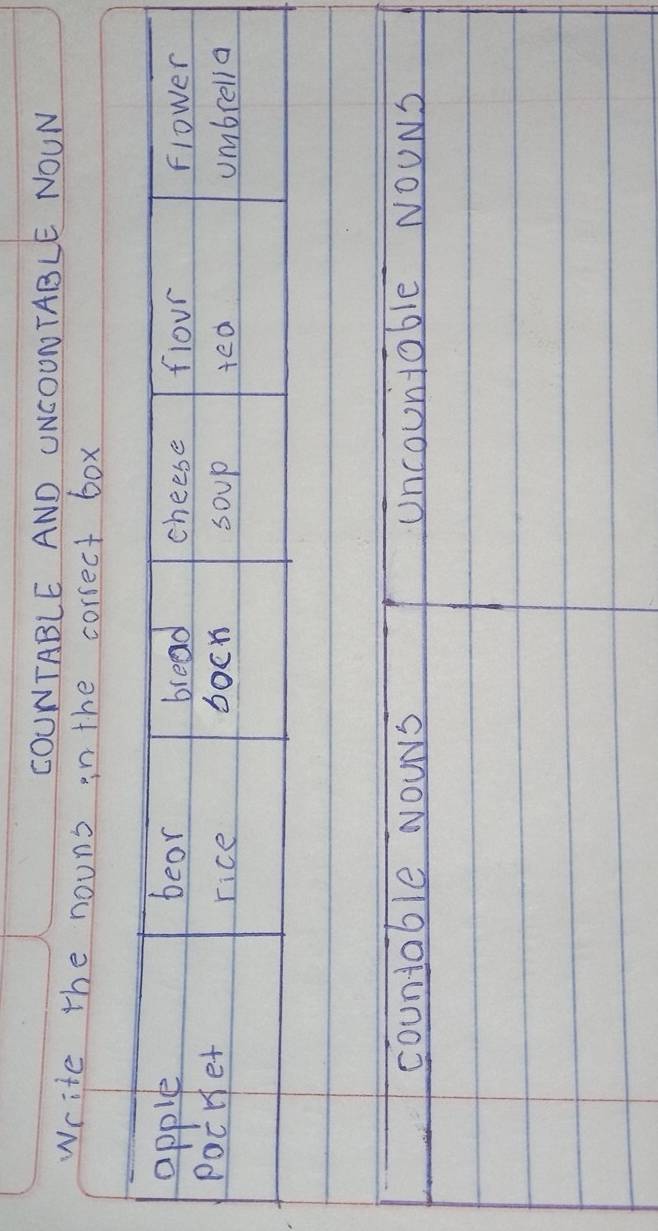 COUNTABLE AND UNCOUNTABLE NOUN
Write the nouns in the correct box
apple bear bread cheese flour flower
Pocket rice sock soup tea umbrella
countable NOUNS uncountable NOUNS